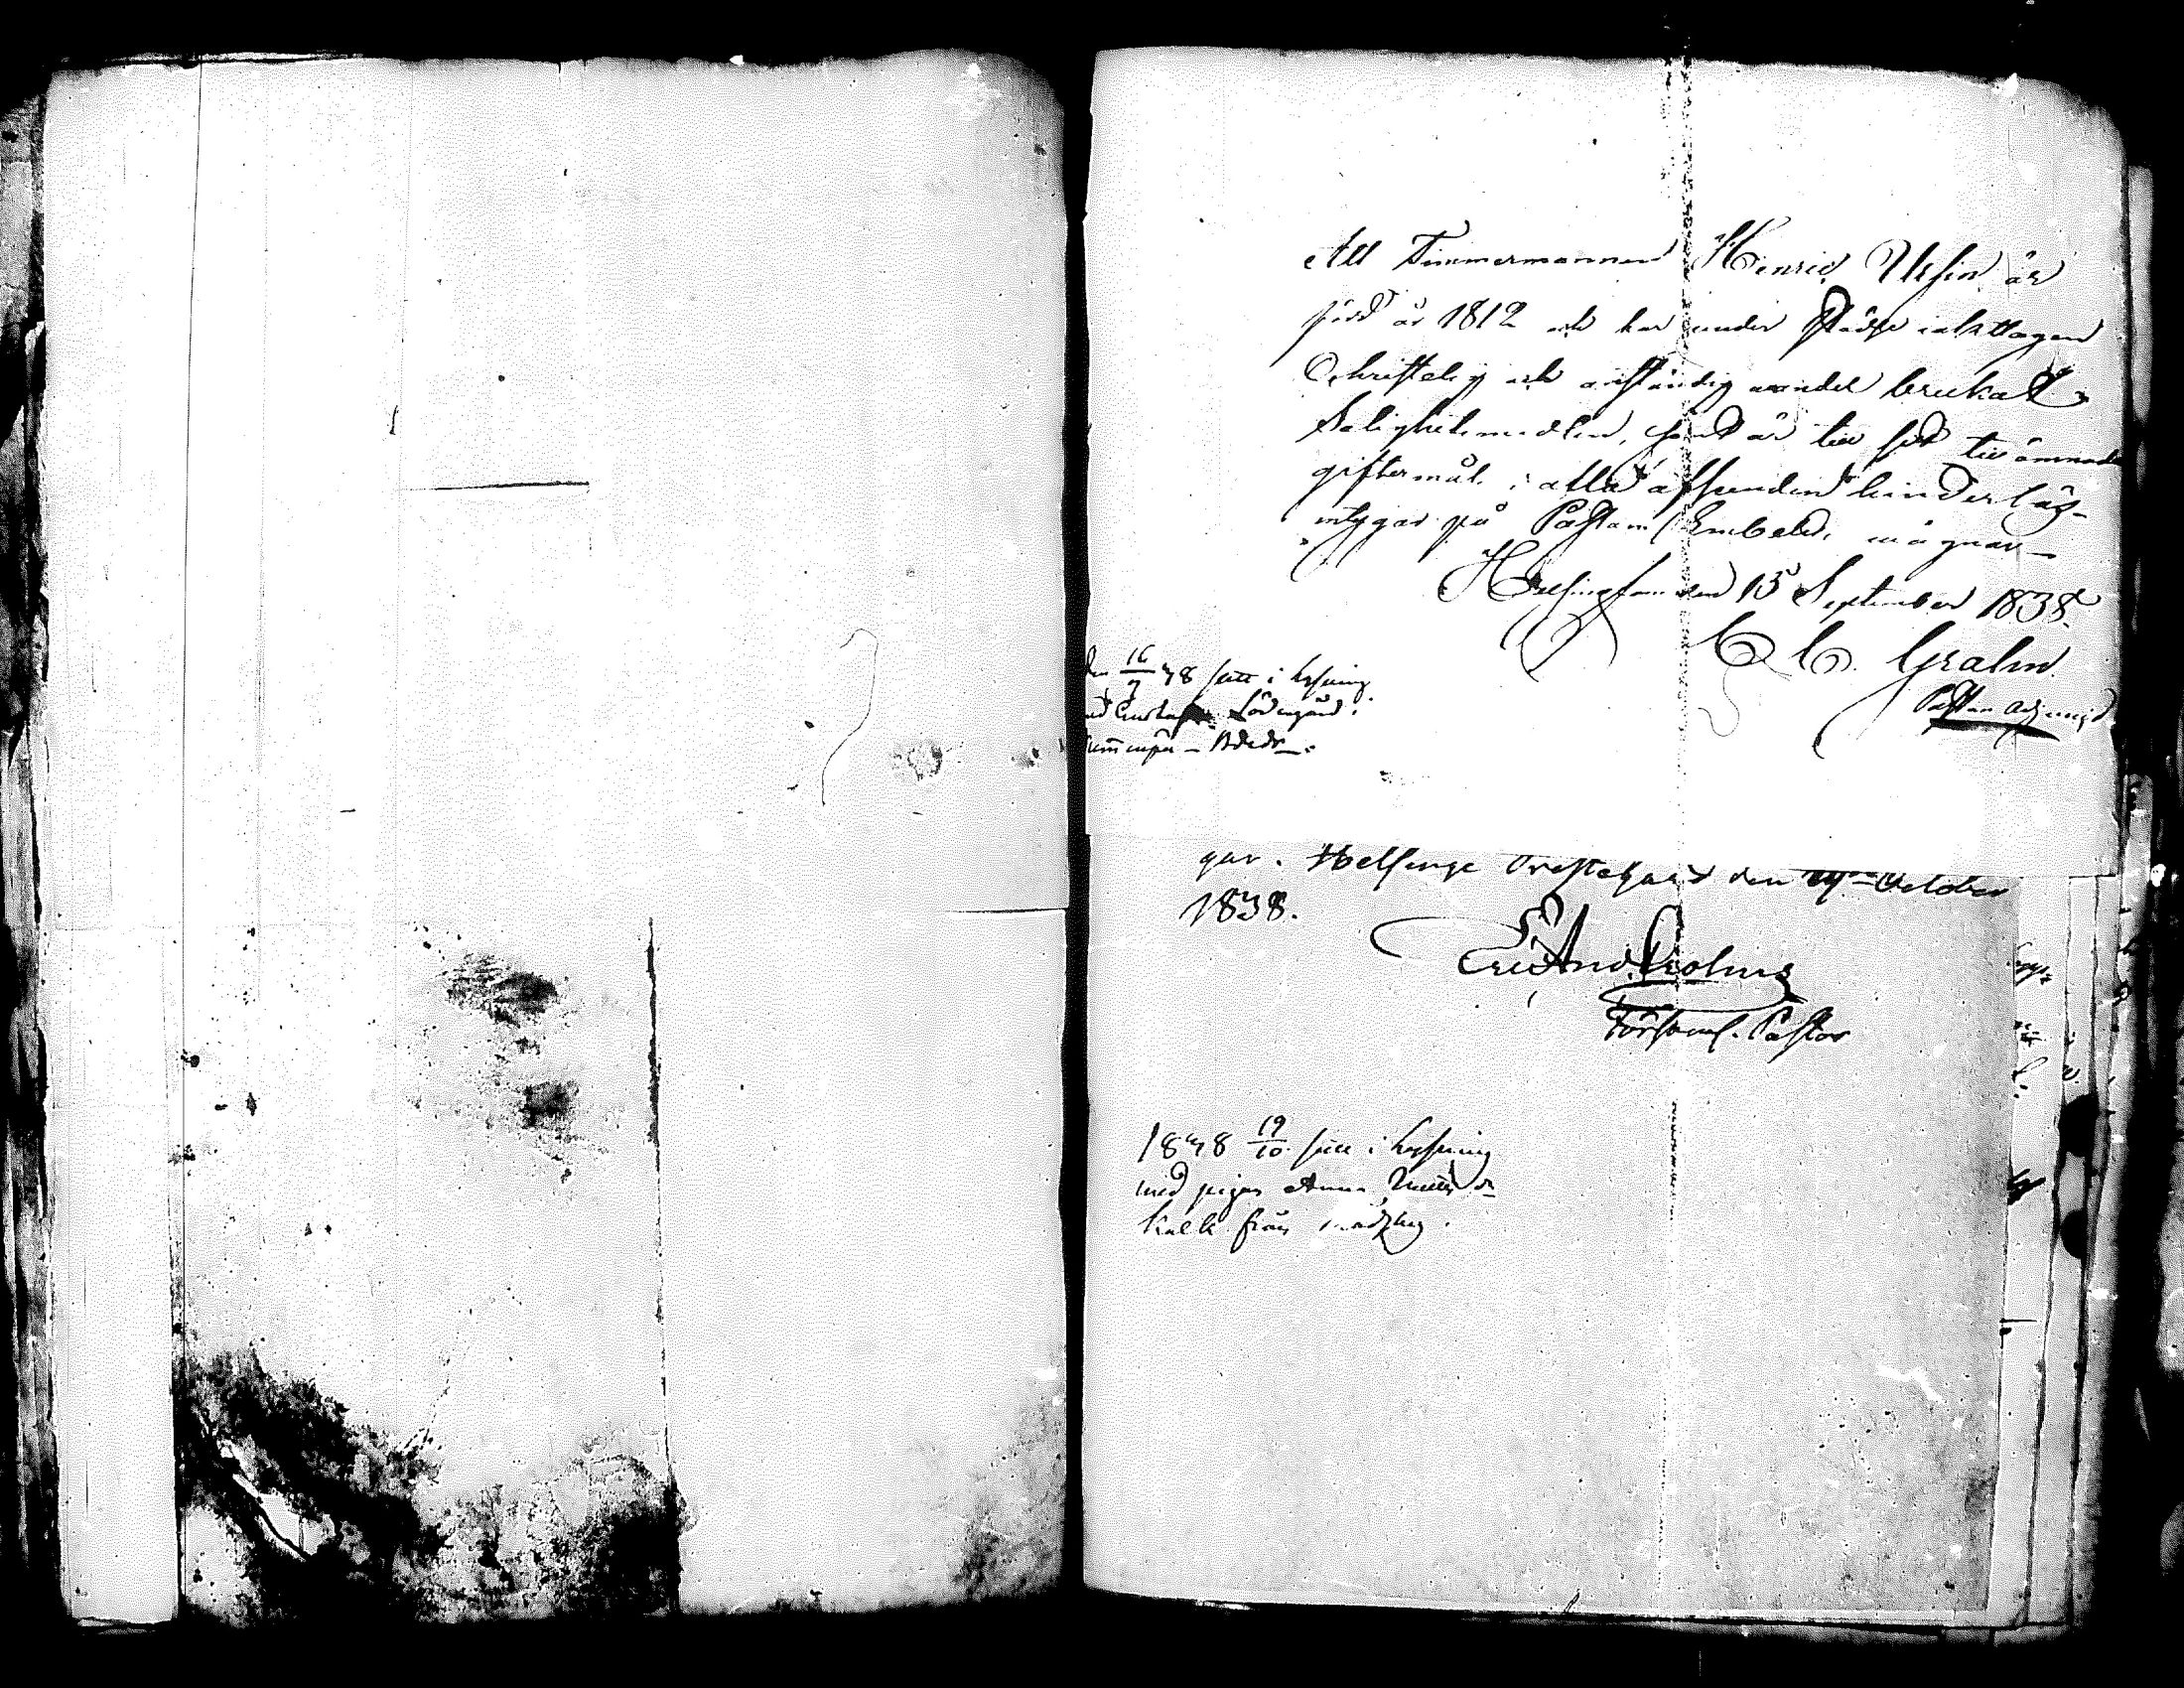 Att Timmermannen Henric Ursin är
född år 1812 och har under städse iakttagen
Christelig och anständig vandel brukat
Salighetsmedlen, samt är till sitt tillämnade
giftermål i alla afseenden hinderlös,
intygar på Pastors Embetets vägnar
Helsingfors den 15 September 1838.
C. C. Grahn.
Pastors Adjunct
den 16/9 38 sitt i lysning
Södergård.
gar. Helsinge Prestegård den October
1838.
Församl. Pastor
1838 19/10 sitt i lysning
med pigan Anna
från